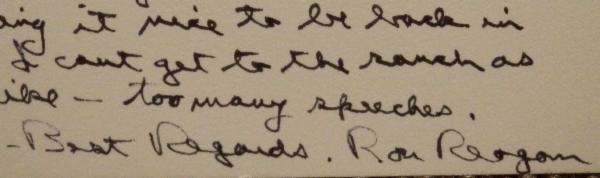 ing it nice to be back in
I cant get to the ranch as
ike – too many speeches.
-Best Regards. Ron Reagan